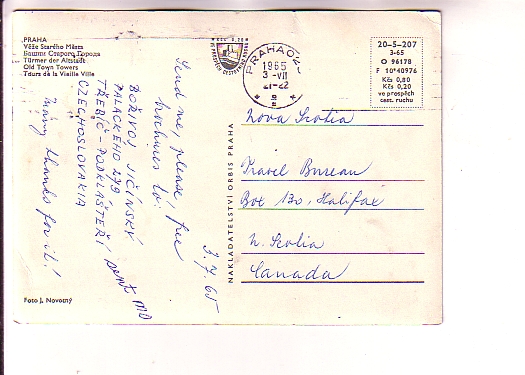 PRAHA
Věže Starého Města
Башни Старого Города
Türmer der Altstadt
Old Town Towers
Tours de la Vieille Ville
Kčs 0,20
PRAHA 021
1965
3 -VII
21-22
20-5-207
3-65
O 96178
F 10*40976
Kčs 0,80
Kčs 0,20
ve prospěch
cest. ruchu
Send me, please, free
brochures to:
BOŘIVOJ JIČÍNSKÝ
PALACKÉHO 279
TŘEBÍČ - PODKLÁŠTEŘÍ
CZECHOSLOVAKIA
Many thanks for it!
3.7.65
NAKLADATELSTVÍ ORBIS PRAHA
Nova Scotia
Travel Bureau
Box 130, Halifax
N. Scotia
Canada
Foto J. Novotný